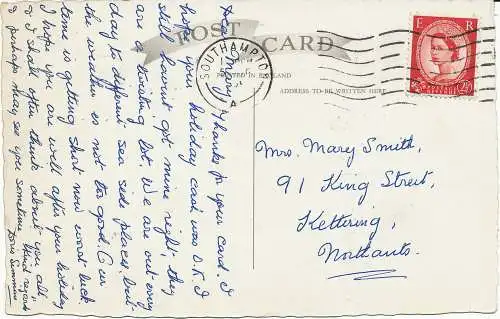 POST CARD
PRINTED IN ENGLAND
ADDRESS TO BE WRITTEN HERE
SOUTHAMPTON
E R
2½D
Dear Mary, Thanks for your card. I
hope you holiday card was O.K. I
still havent got mine right, they
are a twisting lot. We are out every
day to different sea side places, but
the weather is not too good. Our
time is getting short now worst luck.
I hope you are well after your holiday
So I shall often think about you all,
& perhaps may see you sometime. Kind regards
Doris Simmons
Mrs. Mary Smith,
91 King Street,
Kettering,
Northants.